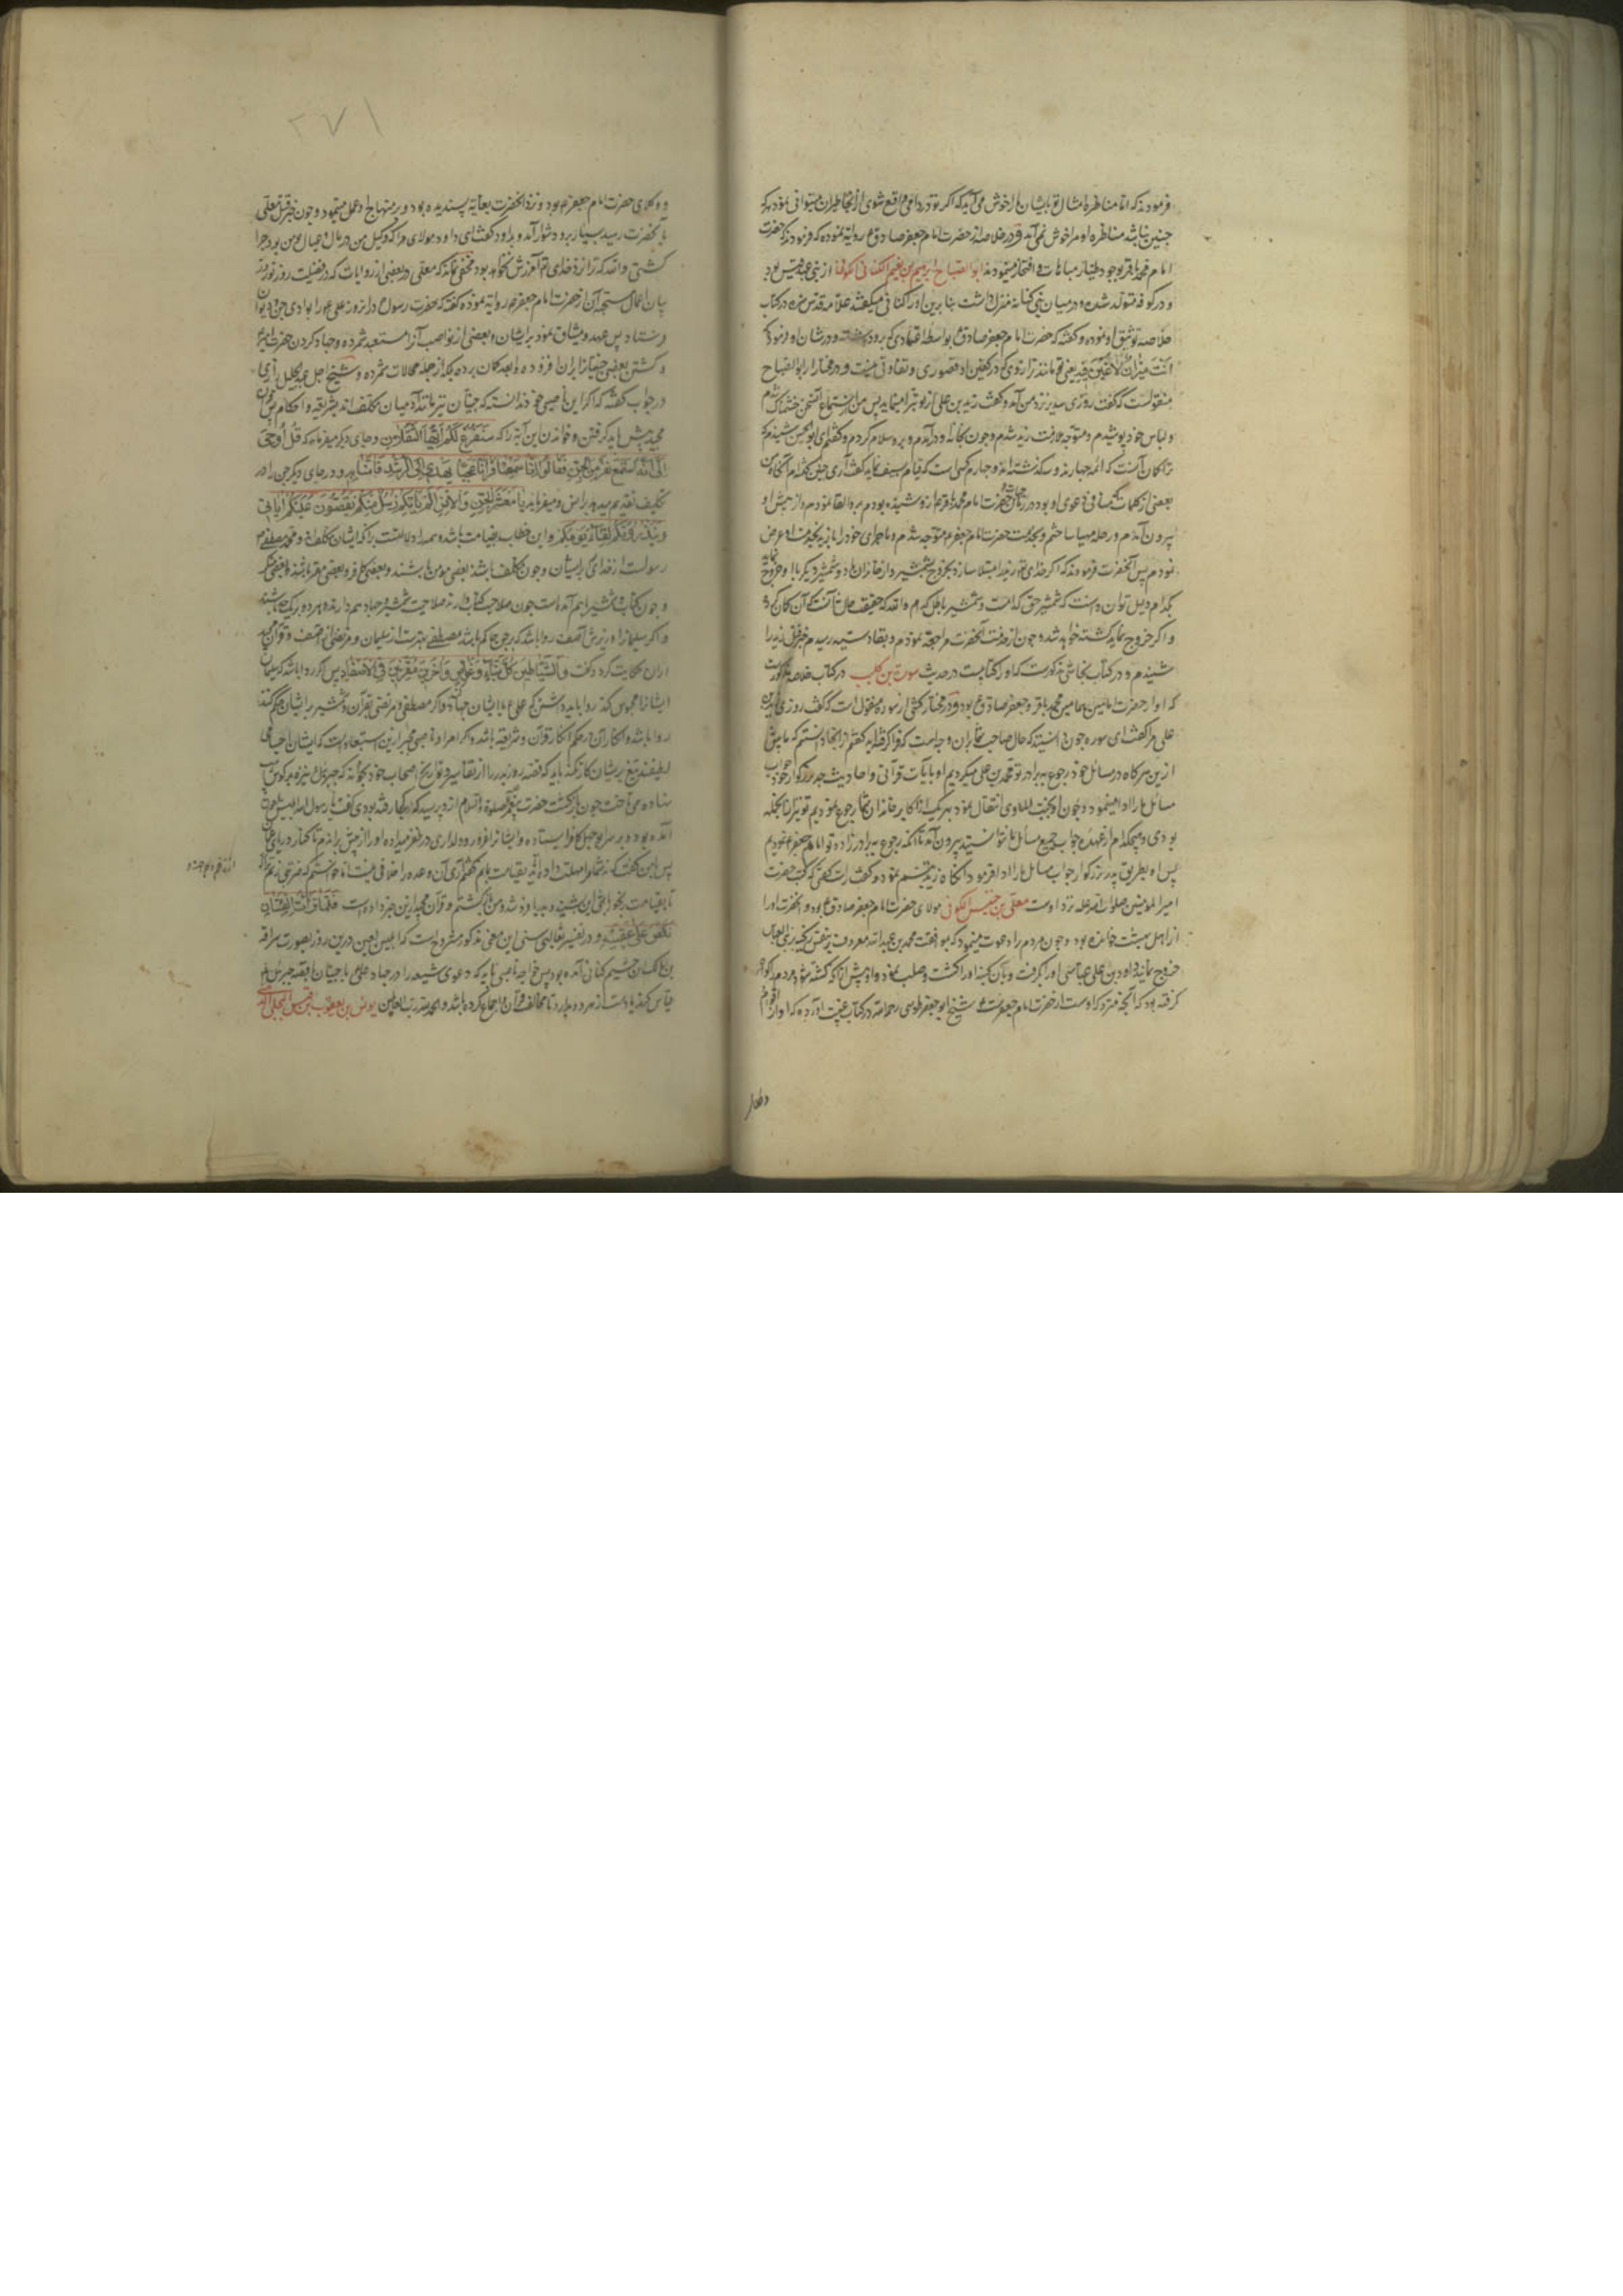 فرمودند که اما مناظره امثال تو با ایشان مرا خوش می آید که اگر تو در دامی واقع شوی از آنجا طیران میتوانی نمود و هر که
چنین نباشد مناظره او مرا خوش نمی آید و در خلاصه از حضرت امام جعفر صادق ع روایة نموده که فرمودند که حضرت
امام محمد باقر بوجود طیار مباهات و افتخار مینمودند ابو الصباح ابرهیم بن نعیم الکنانی الکوفی از بنی عبد قیس بود
و در کوفه متولد شده و در میان بنی کنانه منزل داشت بنا برین او را کنانی میگفتند علامه قدس سره در کتاب
خلاصه توثیق او نموده و گفته که حضرت امام جعفر صادق ع بواسطه اعتمادی که برو داشته در شان او فرمود که
انت میزان لا عین فیه یعنی تو مانند ترازوی که در کفتین او قصوری و تفاوتی نیست و در مختار از ابو الصباح
منقولست که گفت روزی سدیر نزد من آمد و گفت زید بن علی از تو تبرا مینماید پس من از استماع آن سخن خشمناک شدم
و لباس خود پوشیدم و متوجه خدمت زید شدم و چون بخانه او در آمدم و برو سلام کردم و گفتم ای ابو الحسین شنیدم که
ترا گمان آنست که ائمه چهارند و سه گذشته اند و چهارم کسی است که قیام بسیف نماید گفت آری چنین گفته ام آنگاه من
بعضی از کلمات که منافی دعوی او بود در زمان حیوة حضرت امام محمد باقر ع از و شنیده بودم برو القا نمودم و از پیش او
بیرون آمدم و راحله مهیا ساختم و بخدمت حضرت امام جعفر ع متوجه شدم و ماجرای خود را با زید بخدمت او عرض
نمودم پس آنحضرت فرمودند که اگر خدای تعالی زید را مبتلا سازد بخروج بشمشیر و از خاندان ما دو شمشیر دیگر با او خروج نماید
بکدام دلیل توان دانست که شمشیر حق کدامست و شمشیر باطل کدام والله که حقیقت حال نه آنست که آن گمان کرده
و اگر خروج نماید کشته خواهد شد و چون از خدمت آنحضرت مراجعت نمودم و بقادسیه رسیدم خبر قتل زید را
شنیدم و در کتاب نجاشی مذکورست که او را کتابیست در حدیث سورة بن کلیب در کتاب خلاصه مذکورست
که او از حضرت امامین همامین محمد باقر و جعفر صادق ع بود و در مختار کشی از سوره منقول است که گفت روزی زید بن
علی مرا گفت ای سوره چون دانستید که حال صاحب شما بر آن وجه است که ذکر میکنید گفتم از آنجا دانستم که ما پیش
ازین هر گاه در مسائل خود رجوع به برادر تو محمد بن علی میکردیم او بآیات قرآنی و احادیث جد بزرگوار خود جواب
مسائل ما را ادا مینمود و چون او بجنت الماوی انتقال نمود بهر یک از اکابر خاندان شما رجوع نمودیم تو نیز از آنجمله
بودی و هیچکدام از عهده جواب جمیع مسائل ما نتوانستید بیرون آمد تا آنکه رجوع به برادر زاده تو امام جعفر نمودیم
پس او بطریق پدر بزرگوار جواب مسائل ما را ادا فرمود آنگاه زید تبسم نمود و گفت راست گفتی که کتب حضرت
امیر المومنین صلوات الله علیه نزد اوست معلی بن خنیس الکوفی مولای حضرت امام جعفر صادق ع بود و آنحضرت او را
از اهل بهشت خوانده بود و چون مردم را دعوت مینمود که بموافقت محمد بن عبد الله معروف بنفس زکیه بر بنی العباس
خروج نمایند داود بن علی عباسی او را گرفت و بآن کینه او را کشت و صلب نمود و او پیش از آنکه کشته شود مردم را گواه
گرفته بود که آنچه متروکه اوست از حضرت امام جعفرست و شیخ ابو جعفر طوسی رحمه الله در کتاب غیبت آورده که او از قوام
و وکلای
۲۷۱
و وکلای حضرت امام جعفر ع بود و نزد آنحضرت بغایة پسندیده بود و بر منهاج او عمل مینمود و چون خبر قتل معلی
بآنحضرت رسید بسیار برو دشوار آمد و بداود گفت ای داود مولای مرا که وکیل من در مال و عیال من بود چرا
کشتی والله که ترا نزد خدای تعالی آمرزش نخواهد بود مخفی نماند که معلی در بعضی از روایات که در فضیلت روز نوروز و
بیان اعمال مستحبه آن از حضرت امام جعفر ع روایة نموده گفته که حضرت رسول ص در آن روز علی ع را بوادی جن و دیوان
فرستاد پس عهد و میثاق نمود بر ایشان و بعضی از نواصب آنرا مستبعد شمرده و جهاد کردن حضرت امیر
و کشتن بعضی جنیان را بر آن افزوده و ابعد گمان برده بلکه از جمله محالات شمرده و شیخ اجل عبد الجلیل رازی
در جواب گفته که اگر این ناصبی خود ندانسته که جنیان نیز مانند آدمیان مکلف اند بشریعة و احکام پس قرآن
مجید پیش باید گرفتن و خواندن این آیة را که سنفرغ لکم ایها الثقلان و جای دیگر میفرماید که قل اوحی
الی انه استمع نفر من الجن فقالوا انا سمعنا قرانا عجبا یهدی الی الرشد فآمنا به و در جای دیگر جن را در
تکلیف تقدیم میدهد بر انس و میفرماید یا معشر الجن و الانس الم یاتکم رسل منکم یقصون علیکم آیاتی
و ینذرونکم لقاء یومکم و این خطاب بقیامت باشد و همه دلالتست بر آنکه ایشان مکلفند و محمد مصطفی ص
رسولست از خدای بر ایشان و چون مکلف باشند بعضی مومن باشند و بعضی کافر و بعضی مقر باشند و بعضی منکر
و چون کتاب و شمشیر با هم آمده است چون صلاحیت کتاب دارند صلاحیت شمشیر و جهاد هم دارند و هر دو یک جا باشند
و اگر سلیمان را و وزیرش آصف روا باشد که بر جن حاکم باشد مصطفی بهترست از سلیمان و مرتضی از آصف و قرآن مجید
از آن حکایت کرد و گفت و الشیاطین کل بناء و غواص و آخرین مقرنین فی الاصفاد پس اگر روا باشد که سلیمان
ایشان را محبوس کند روا باید داشتن که علی ع با ایشان جهاد کند و اگر مصطفی و مرتضی بقرآن و شمشیر بر ایشان حکم کنند
روا باشد و انکار آن در حکم انکار قرآن و شریعة باشد و اگر مراد ناصبی مجبر ازین استبعاد است که ایشان اجسامی
لطیفند تیغ بر ایشان کار نکند باید که قصه روز بدر را از تفاسیر و تواریخ اصحاب خود بخواند که جبرئیل نیزه بر کوس
نهاده می تاخت چون باز گشت حضرت پیغمبر علیه الصلوة و السلام ازو پرسید که کجا رفته بودی گفت یا رسول الله ابلیس ملعون
آمده بود و بر سر بوجهل کافر ایستاده و ایشان را غرور و دلداری در ظفر میداد و او را از پیش براندم تا کنار دریای عمان
پس بمن گفت که نه شما مرا مهلت داده اید تا بقیامت باهم گفتم آری آن وعده را خلافی نیست اما خواستم که ضربتی زنم ترا که
تا بقیامت
نکص علی عقبیه و در تفسیر ثعالبی سنی این معنی مذکور مشروح است که ابلیس لعین درین روز بصورت سراقه
بن مالک بن جشیم کنانی آمده بود پس خواجه ناصبی باید که دعوی شیعه را در جهاد علی ع با جنیان با قصه جبرئیل
قیاس کند یا دست از هر دو بدارد تا مخالف قرآن و اجماع نکرده باشد و الحمد لله رب العالمین یونس بن یعقوب بن قیس البجلی الدهنی